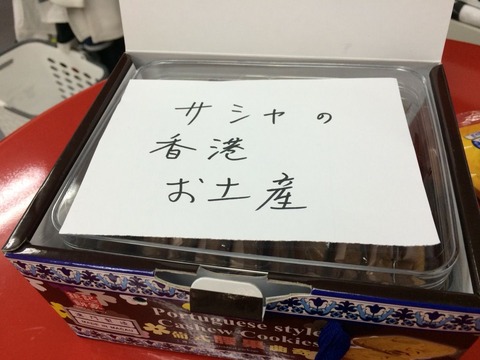 サシャの
香港
お土産
Portuguese style
Cashew Cookies